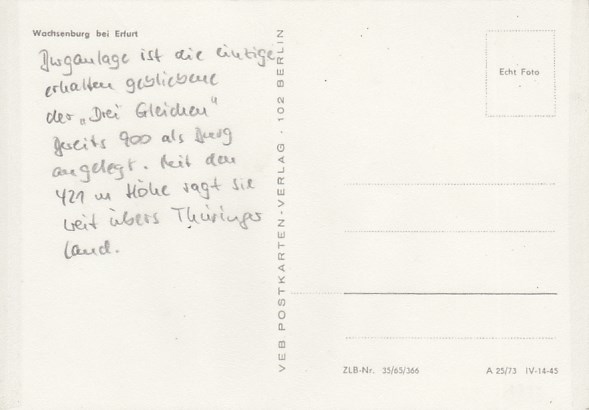 Wachsenburg bei Erfurt
Burganlage ist die einzige
erhalten gebliebene
der „Drei Gleichen"
Bereits 900 als Burg
angelegt. Mit den
421 m Höhe ragt sie
weit übers Thüringer
Land.
VEB POSTKARTEN-VERLAG · 102 BERLIN
Echt Foto
ZLB-Nr. 35/65/366
A 25/73 IV-14-45